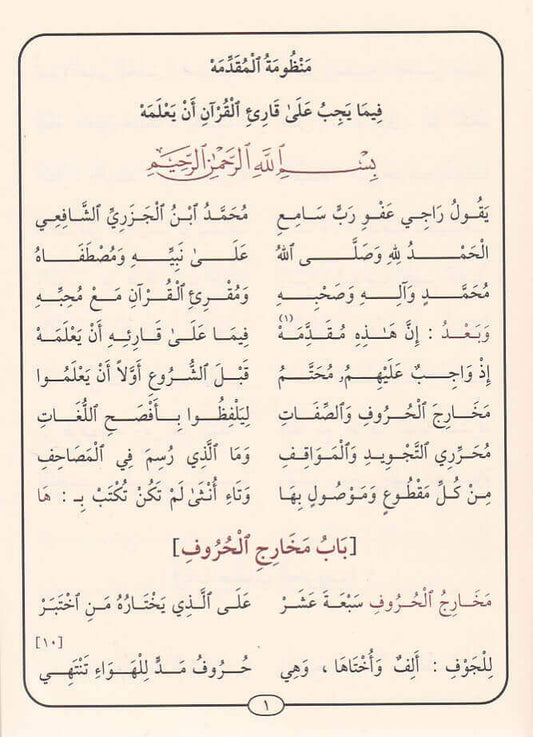 مَنْظُومَةُ ٱلْمُقَدِّمَهْ
فِيمَا يَجِبُ عَلَىٰ قَارِئِ ٱلْقُرْآنِ أَنْ يَعْلَمَهْ
بِسْمِ ٱللَّهِ ٱلرَّحْمَٰنِ ٱلرَّحِيمِ
يَقُولُ رَاجِي عَفْوِ رَبٍّ سَامِعِ مُحَمَّدُ ٱبْنُ ٱلْجَزَرِيِّ ٱلشَّافِعِي
الْحَمْدُ لِلهِ وَصَلَّى ٱللهُ عَلَىٰ نَبِيِّهِ وَمُصْطَفَاهُ
مُحَمَّدٍ وَآلِهِ وَصَحْبِهِ وَمُقْرِئِ ٱلْقُرْآنِ مَعْ مُحِبِّهِ
وَبَعْدُ : إِنَّ هَٰذِهِ مُقَدَّمَهْ(١) فِيمَا عَلَىٰ قَارِئِهِ أَنْ يَعْلَمَهْ
إِذْ وَاجِبٌ عَلَيْهِمُ مُحَتَّمُ قَبْلَ ٱلشُّرُوعِ أَوَّلاً أَنْ يَعْلَمُوا
مَخَارِجَ ٱلْحُرُوفِ وَٱلصِّفَاتِ لِيَلْفِظُوا بِأَفْصَحِ ٱللُّغَاتِ
مُحَرِّرِي ٱلتَّجْوِيدِ وَٱلْمَوَاقِفِ وَمَا ٱلَّذِي رُسِمَ فِي ٱلْمَصَاحِفِ
مِنْ كُلِّ مَقْطُوعٍ وَمَوْصُولٍ بِهَا وَتَاءِ أُنْثَىٰ لَمْ تَكُنْ تُكْتَبْ بِـ : هَا
[بَابُ مَخَارِجِ ٱلْحُرُوفِ]
مَخَارِجُ ٱلْحُرُوفِ سَبْعَةَ عَشَرْ عَلَى ٱلَّذِي يَخْتَارُهُ مَنِ ٱخْتَبَرْ
[١٠]
لِلْجَوْفِ : أَلِفٌ وَأُخْتَاهَا ، وَهِي حُرُوفُ مَدٍّ لِلْهَوَاءِ تَنْتَهِي
١